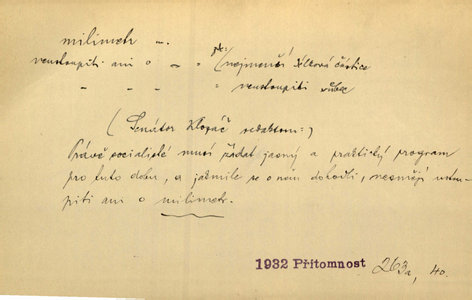 milimetr –.
neustoupiti ani o – " (nejmenší délková částice
– – – " neustoupiti vůbec
(Senátor Klofáč redaktoru:)
Právě socialisté musí žádat jasný a praktický program
pro tuto dobu, a jakmile se o něm dohodli, nesmějí ustou-
piti ani o milimetr.
1932 Přítomnost 263a, 40.